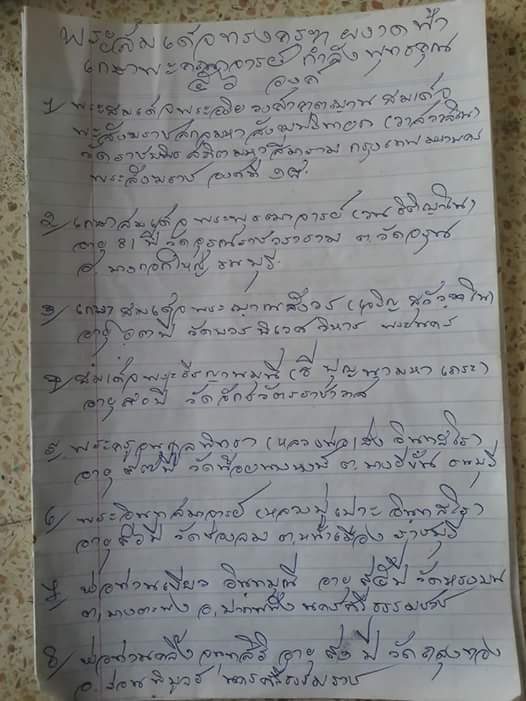 พระสมเด็จทรงครุฑ ผงาดฟ้า
เกษาพระคณาจารย์ กำลังพุทธคุณ
๕๖ องค์
1/ พระสมเด็จพระอริยวงศาคตญาณ สมเด็จ
พระสังฆราชสกลมหาสังฆปริณายก (วาสาวสโน)
วัดราชบพิธสถิตมหาสีมาราม กรุงเทพมหานคร
พระสังฆราช องค์ที่ ๑๘.
2/ เกษาสมเด็จ พระพุฒาจารย์ (วน ฐิติญาโน)
อายุ 81 ปี วัดอรุณราชวราราม ต.วัดอรุณ
อ.บางกอกใหญ่ ธนบุรี.
3/ เกษาสมเด็จ พระญาณสังวร (เจริญ สุวฑฺฒโน)
อายุ ๖๓ ปี วัดบวรนิเวศวิหาร พระนคร
๔/ สมเด็จพระธีรญาณมุนี (ธี ปุณฺณกมหาเถระ)
อายุ ปี วัดจักรวรรดิราชาวาส
๕/ พระครู (หลวงพ่อเส่ง อินฺทสโร)
อายุ ปี วัดน้อยนางหงษ์ ต.บางยี่ขัน ธนบุรี
๖/ พระอินทสมาจารย์ (หลวงปู่เงาะ อินฺทสโร)
อายุ ปี วัดช่องลม ต.หน้าเมือง ราชบุรี
๗/ พ่อท่านเขียว อินฺทมุนี อายุ ปี วัดหรงบน
ต.บางตะพง อ.ปากพนัง นครศรีธรรมราช
8/ พ่อท่านคลิ้ง จนฺทสิริ อายุ ปี วัดถลุงทอง
อ.ร่อนพิบูลย์ นครศรีธรรมราช